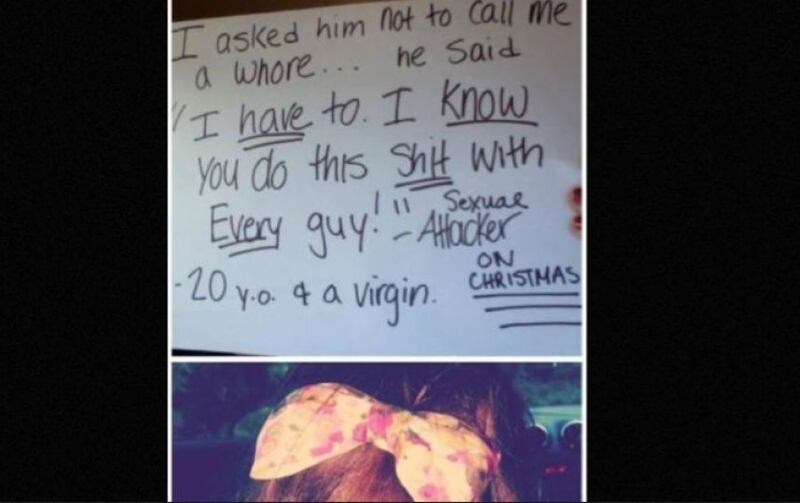 I asked him not to call me
a whore... he said
"I have to. I know
you do this shit with
Every guy!" - Sexual
Attacker
ON
CHRISTMAS
-20 y.o. & a virgin.